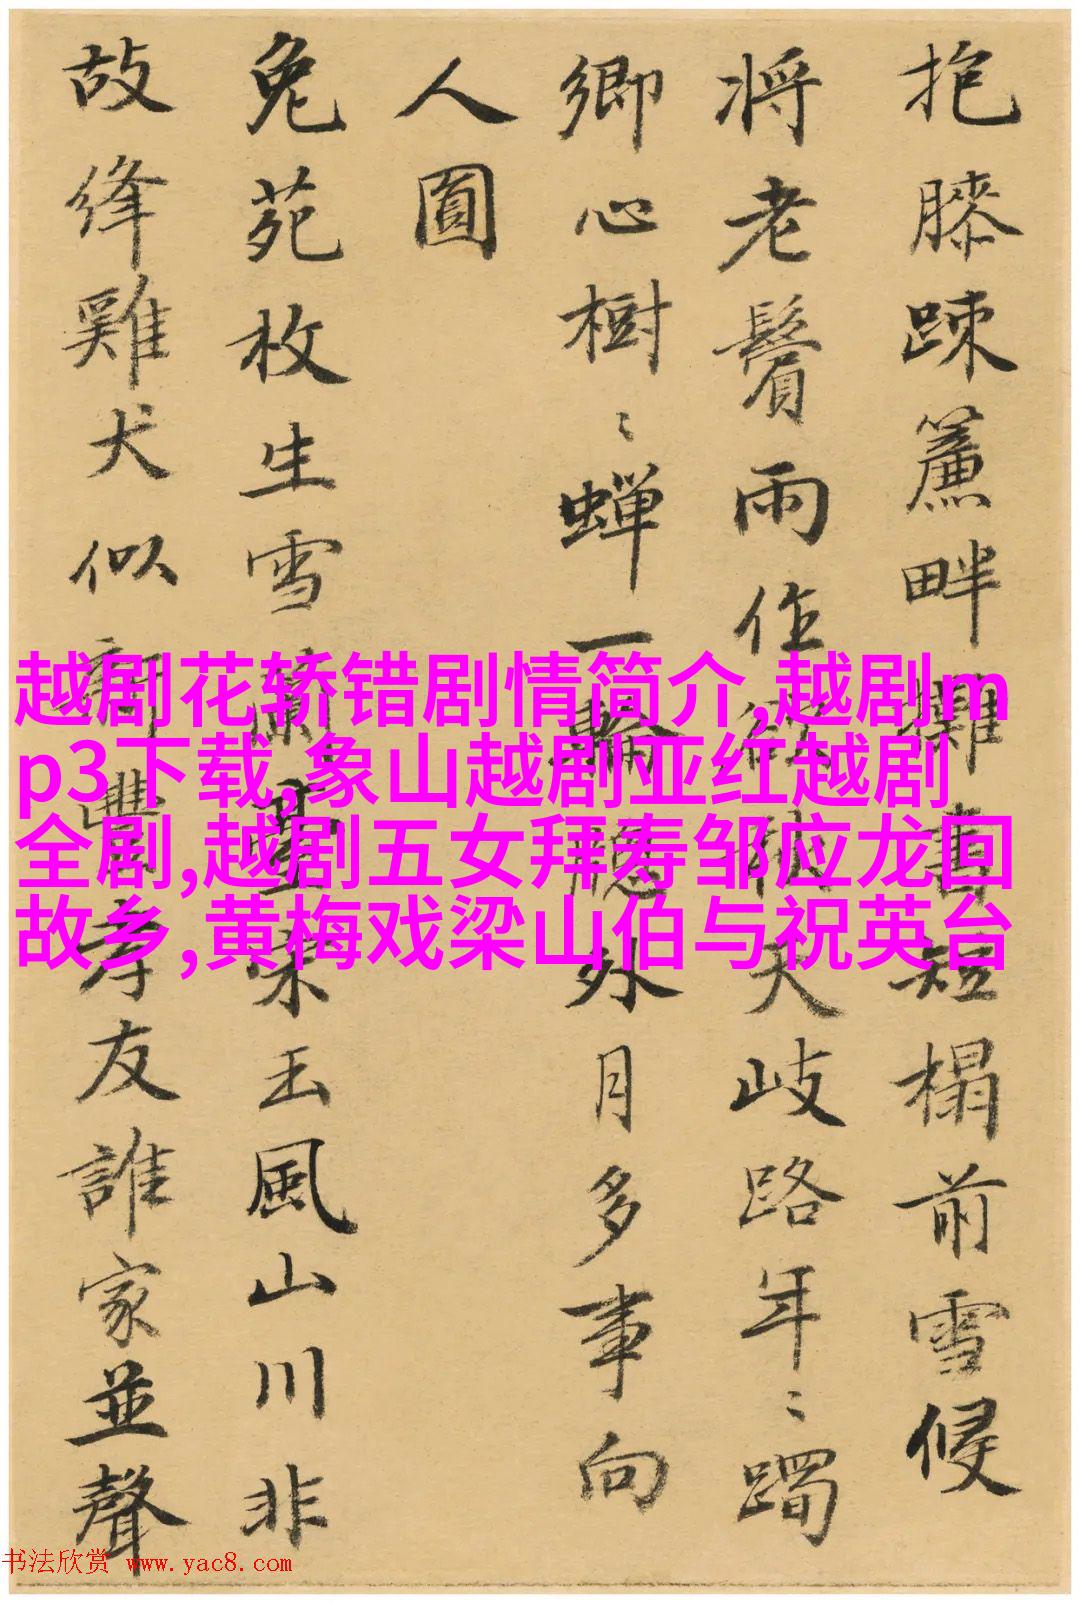 抱膝踈簾畔攤書短榻前雪候
将老鬢雨作欲天歧路年〻躅
鄉心樹〻蝉一輪外月多事向
人圓
兔苑枚生雪蘭臺宋玉風山川非
故絳雞犬似新豐友誰家並聲
越剧花轿错剧情简介,越剧m
p3下载,象山越剧亚红越剧
全剧,越剧五女拜寿邹应龙回
故乡,黄梅戏梁山伯与祝英台
书法欣赏 www.yac8.com